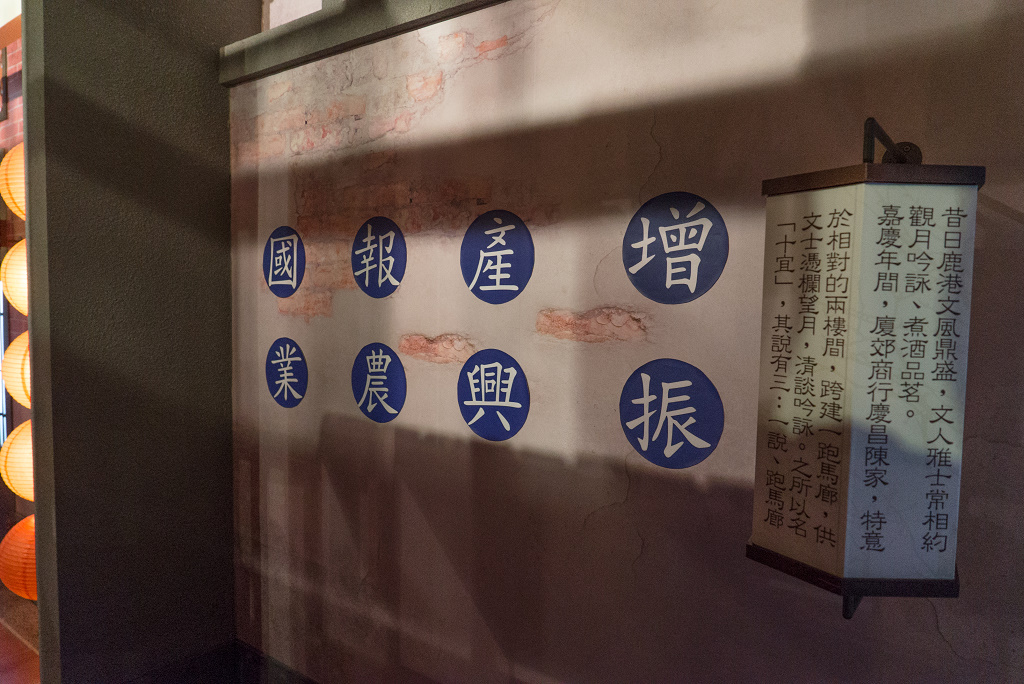 增產報國
振興農業
昔日鹿港文風鼎盛，文人雅士常相約
觀月吟詠、煮酒品茗。
嘉慶年間，廈郊商行慶昌陳家，特意
於相對的兩樓間，跨建一跑馬廊，供
文士憑欄望月，清談吟詠。之所以名
「十宜」，其說有三：一說、跑馬廊